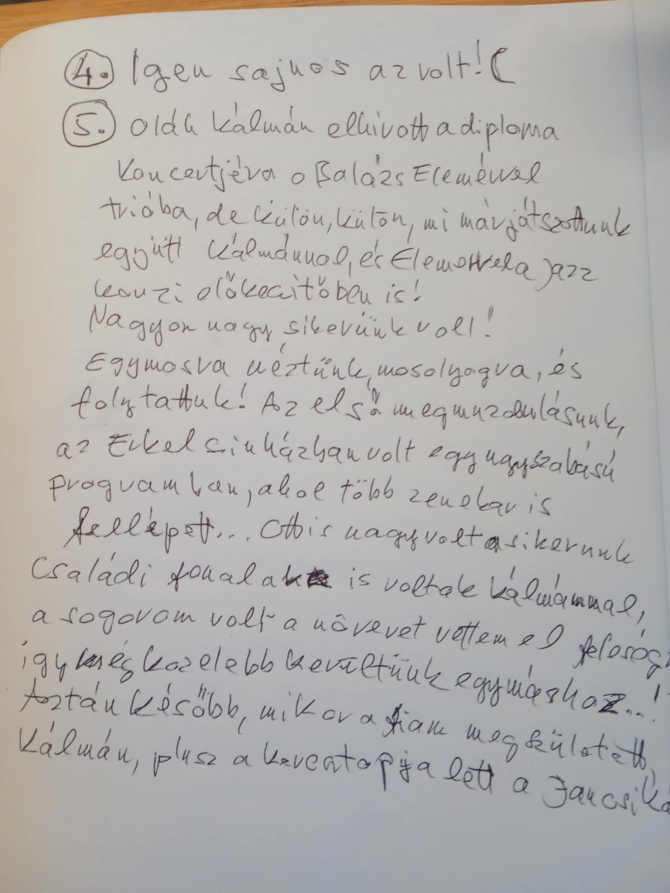 4. Igen sajnos az volt! (
5. Oláh Kálmán elhivott a diploma
Koncertjéra a Balázs Elemérrel
trióba, de külön, külön, mi már játszottunk
együtt Kálmánnal, és Elemérrel a jazz
konzi előkészitőben is!
Nagyon nagy sikerünk volt!
Egymásra néztünk, mosolyogva, és
folytattuk! Az első megmozdulásunk,
az Erkel szinházban volt egy nagyszabású
programban, ahol több zenekar is
fellépett... Ott is nagy volt a sikerünk
Családi fonalak is voltak Kálmánnal,
a sógorom volt a nővéret vettem el feleségü
így még közelebb kerültünk egymáshoz...!
Aztán később, mikor a fiam megszületett,
Kálmán, plusz a keresztapja lett a Jancsiká